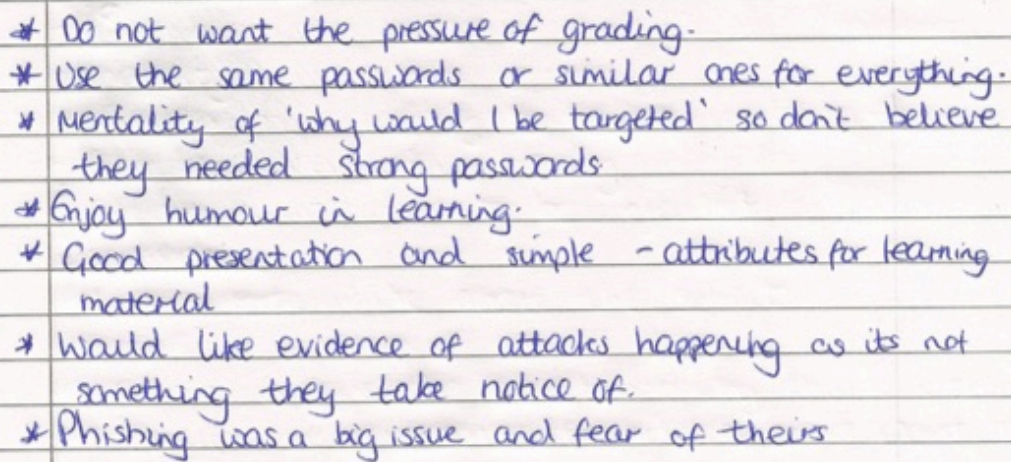 * Do not want the pressure of grading.
* Use the same passwords or similar ones for everything.
* Mentality of 'why would I be targeted' so don't believe
they needed strong passwords
* Enjoy humour in learning.
* Good presentation and simple - attributes for learning
material
* Would like evidence of attacks happening as its not
something they take notice of.
* Phishing was a big issue and fear of theirs